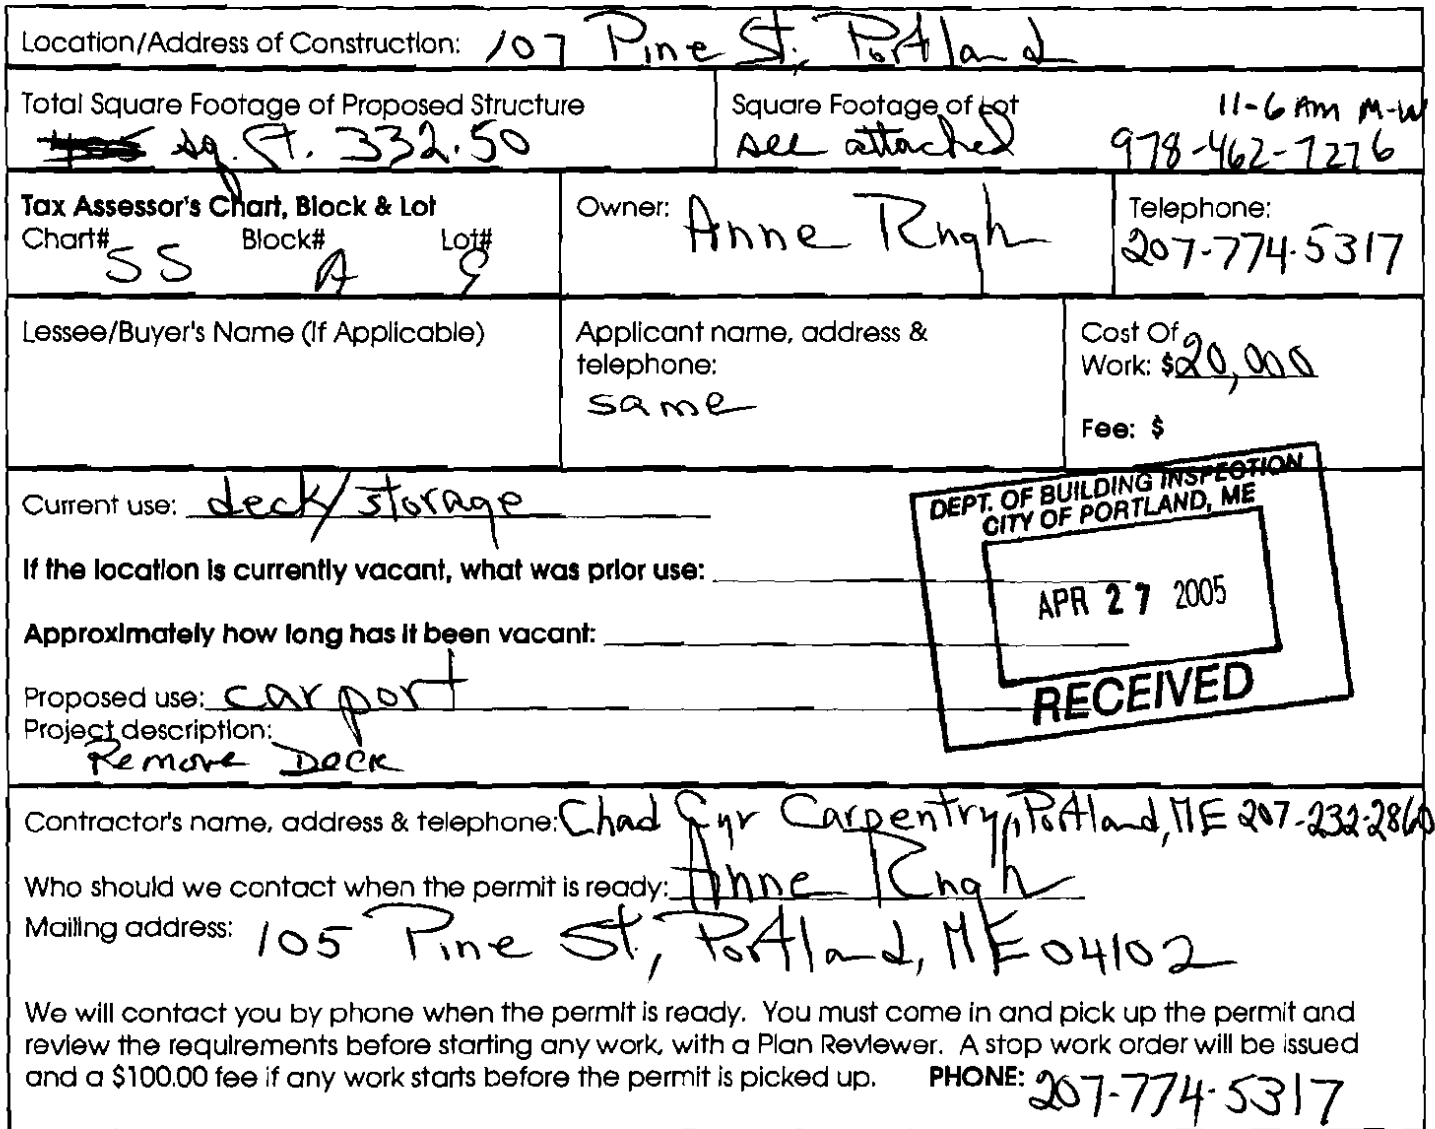 Location/Address of Construction: 107 Pine St., Portland
Total Square Footage of Proposed Structure
sq. ft. 332.50
Square Footage of Lot
see attached
11-6 AM M-W
978-462-7276
Tax Assessor's Chart, Block & Lot
Chart# Block# Lot#
55 A 9
Owner: Anne
Telephone:
207-774-5317
Lessee/Buyer's Name (If Applicable)
Applicant name, address &
telephone:
same
Cost Of
Work: $20,000
Fee: $
Current use: deck/storage
If the location is currently vacant, what was prior use:
Approximately how long has it been vacant:
Proposed use: carport
Project description:
Remove Deck
DEPT. OF BUILDING INSPECTION
CITY OF PORTLAND, ME
APR 27 2005
RECEIVED
Contractor's name, address & telephone: Chad Cyr Carpentry, Portland, ME 207-232-2860
Who should we contact when the permit is ready: Anne
Mailing address: 105 Pine St., Portland, ME 04102
We will contact you by phone when the permit is ready. You must come in and pick up the permit and
review the requirements before starting any work, with a Plan Reviewer. A stop work order will be issued
and a $100.00 fee if any work starts before the permit is picked up. PHONE: 207-774-5317